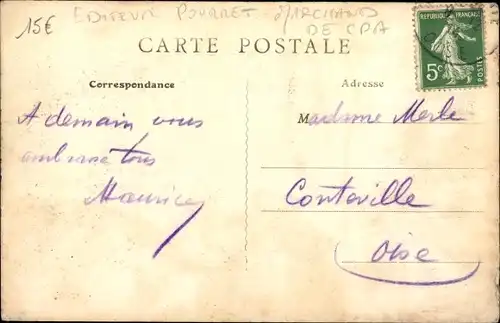 15€ EDITEUR POURRET MARCHAND
DE CPA
CARTE POSTALE
REPUBLIQUE FRANÇAISE
5c
POSTES
Correspondance
Adresse
A demain vous
embrasse tous
Maurice
Madame Merle
Conteville
Oise